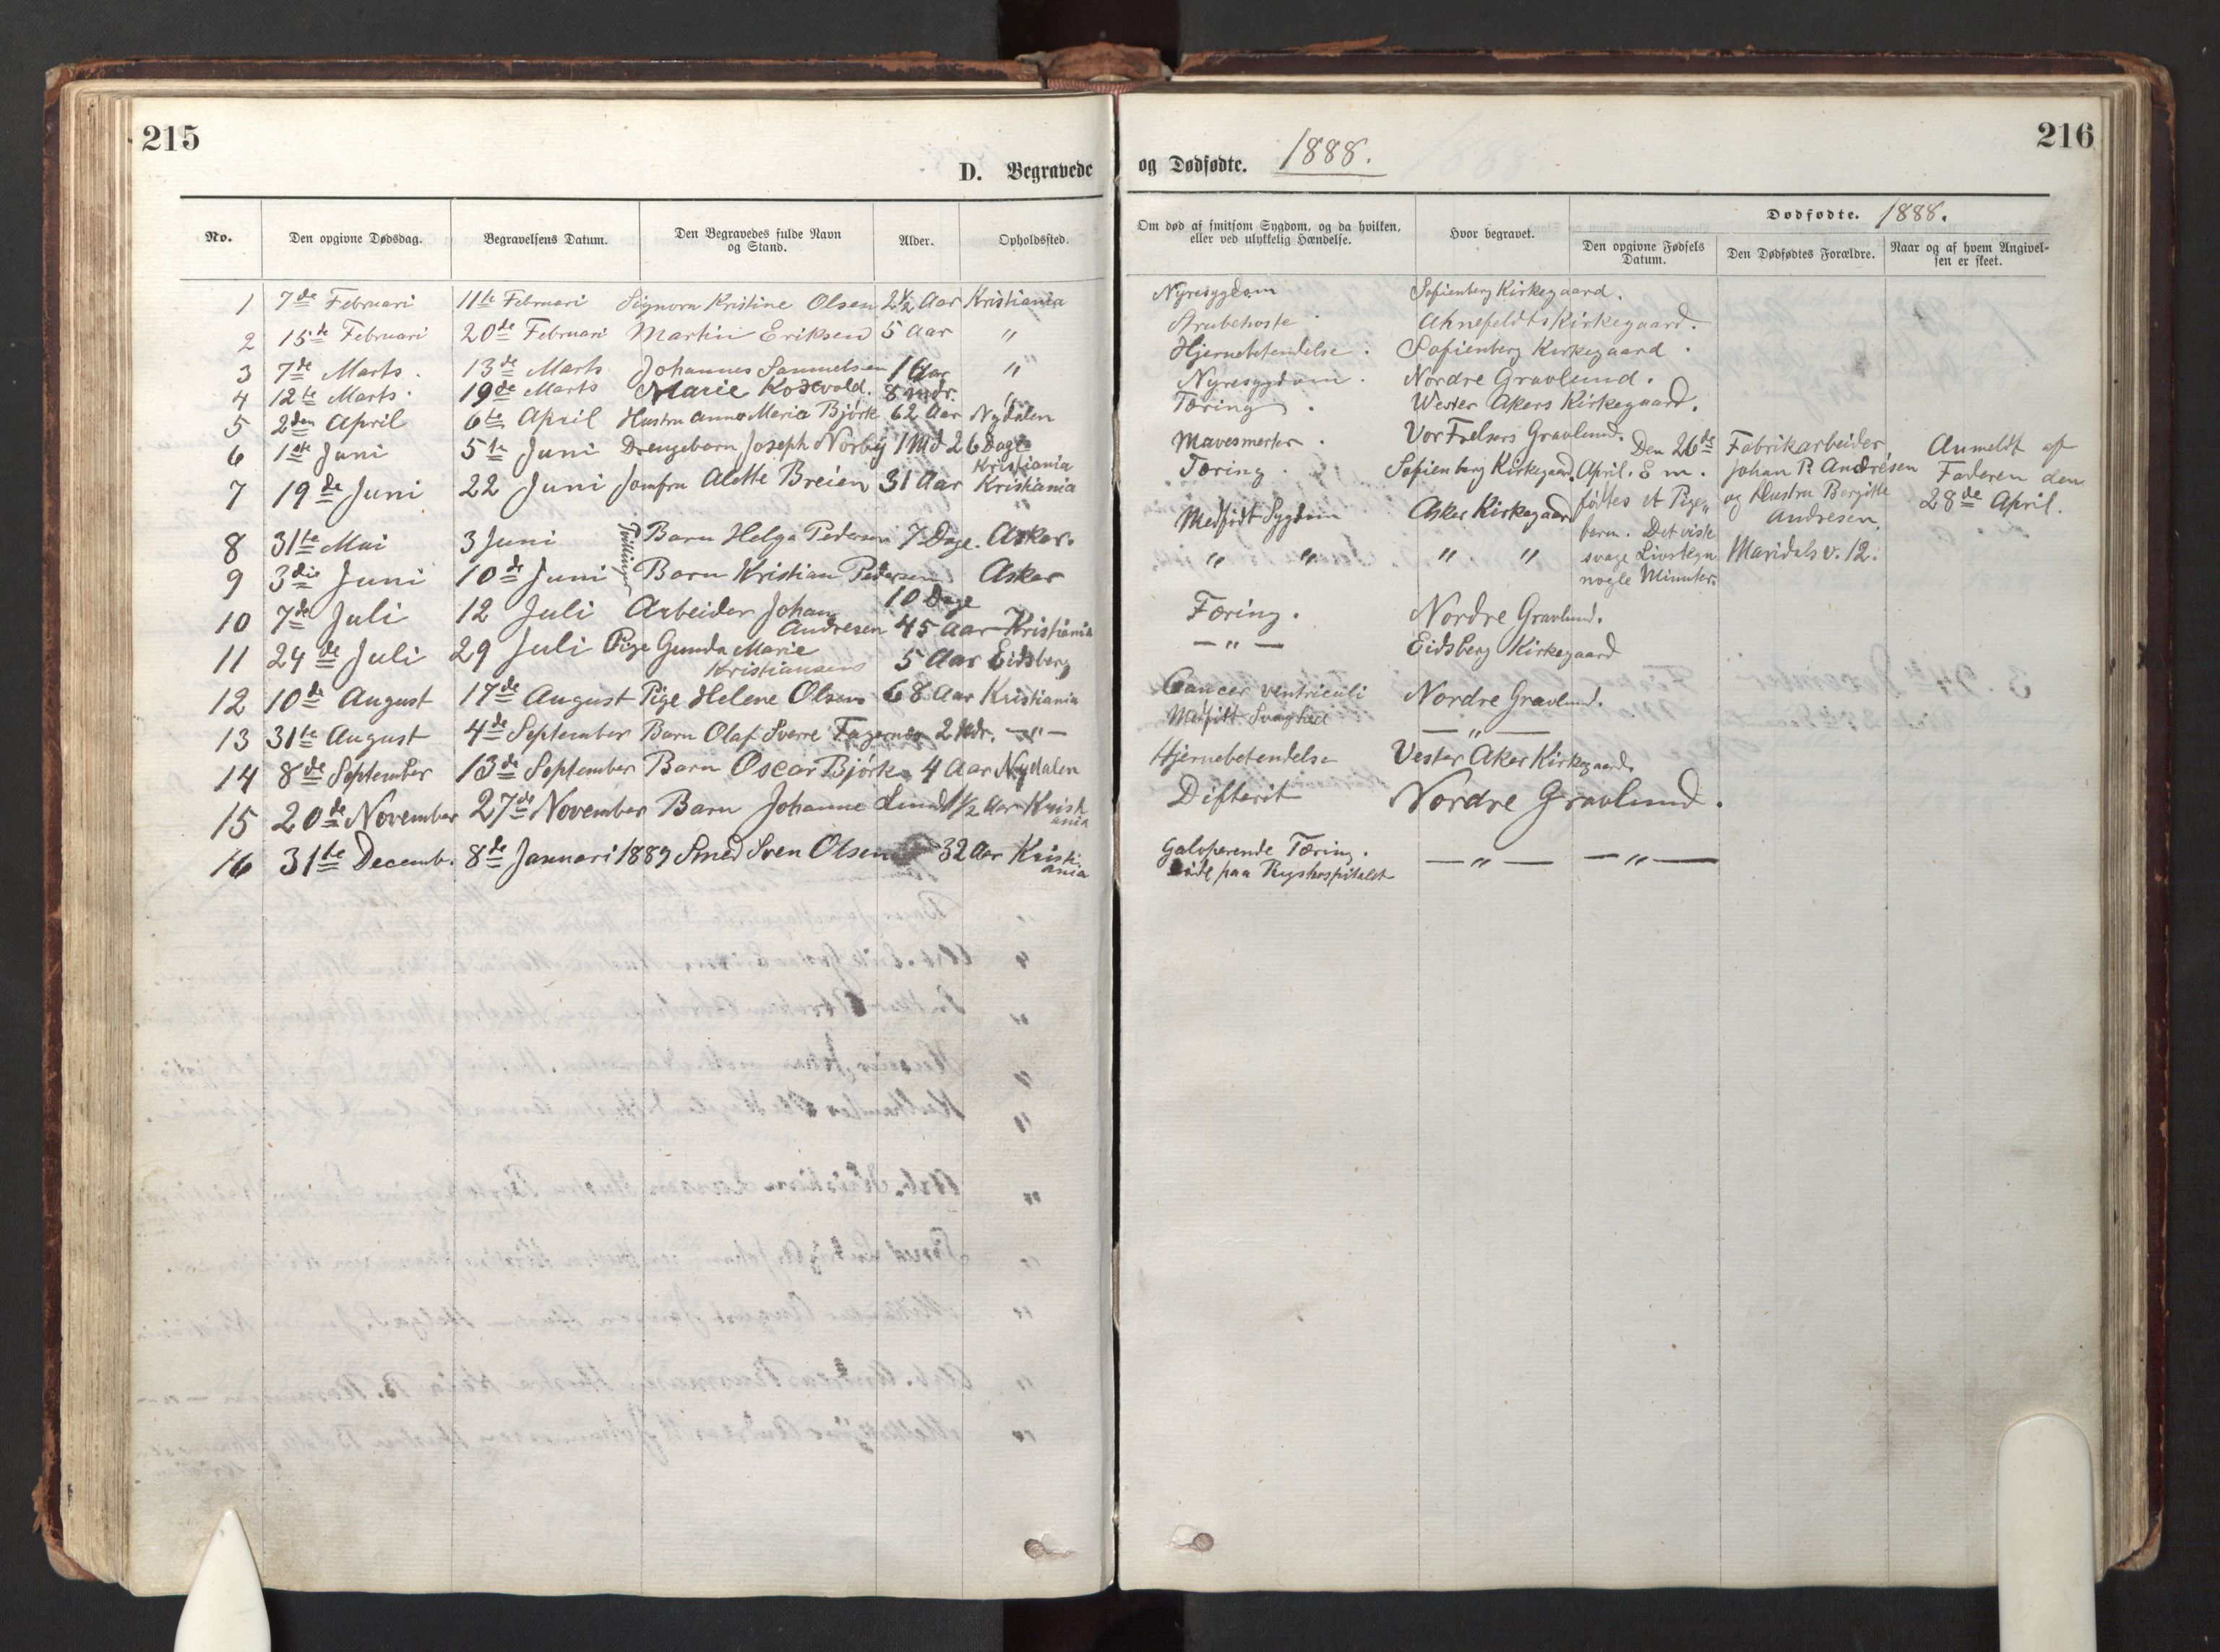 215
D. Begravede
No.
Den opgivne Dødsdag.
Begravelsens Datum.
Den Begravedes fulde Navn og Stand.
Alder.
Opholdssted.
1 7de Februari 11te Februari Signora Kristine Olsen 2½ Aar Kristiania
2 15de Februari 20de Februari Martin Eriksen 5 Aar "
3 7de Marts. 13de Marts Johannes Samuelsen 1 Aar "
4 12te Marts. 19de Marts Marie 8 Mdr. "
5 2den April 6te April Hustru Anna Maria Björk 62 Aar Nydalen
6 1ste Juni 5te Juni Drengebarn Joseph Norby 1 Md 26 Dage
Kristiania
7 19de Juni 22 Juni Jomfru Alette Breien 31 Aar Kristiania
Tvillinger
8 31te Mai 3 Juni Barn Helga Pedersen 7 Dage. Asker.
9 3die Juni 10de Juni Barn Kristian Pedersen Asker
10 Dage
10 7de Juli 12 Juli Arbeider Johan
Andresen 45 Aar Kristiania
11 24de Juli 29 Juli Pige Gunda Marie
Kristiansens 5 Aar Eidsberg
12 10de August 17de August Pige Helene Olsen 68 Aar Kristiania
13 31te August 4de September Barn Olaf Sverre Fagernes 2 Mdr. — " —
14 8de September 13de September Barn Oscar Björk 4 Aar Nydalen
15 20de November 27de November Barn Johanne Lund 1½ Aar Krist
ania
16 31te Decemb. 8de Januari 1889 Smed Sven Olsen 32 Aar Kristi
ania
216
og Dødfødte. 1888.
Om død af smitsom Sygdom, og da hvilken, eller ved ulykkelig Hændelse.
Hvor begravet.
Dødfødte. 1888.
Den opgivne Fødsels Datum.
Den Dødfødtes Forældre.
Naar og af hvem Angivelsen er skeet.
Nyresygdom Sofienberg Kirkegaard.
Strubehoste Ahnefeldts Kirkegaard.
Hjernebetendelse. Sofienberg Kirkegaard.
Nyresygdom. Nordre Gravlund.
Tæring. Wester Akers Kirkegaard.
Mavesmerter. Vor Frelsers Gravlund.
Tæring. Sofienberg Kirkegaard.
Medfødt Sygdom Asker Kirkegaard
" " " "
Tæring. Nordre Gravlund.
— " — Eidsberg Kirkegaard
Cancer ventriculi Nordre Gravlund.
Medfödt Svaghed — " —
Hjernebetendelse Vester Aker Kirkegaard.
Difterit Nordre Gravlund.
Galoperende Tæring.
Döde paa Rigshospitalet — " — — " —
Den 26de
April. E m.
födtes et Pige„
barn. Det viste
svage Livstegn
nogle Minuter.
Fabrikarbeider
Johan P. Andrésen
og Hustru Bergitte
Andresen.
Maridalsv. 12.
Anmeldt af
Faderen den
28de April.